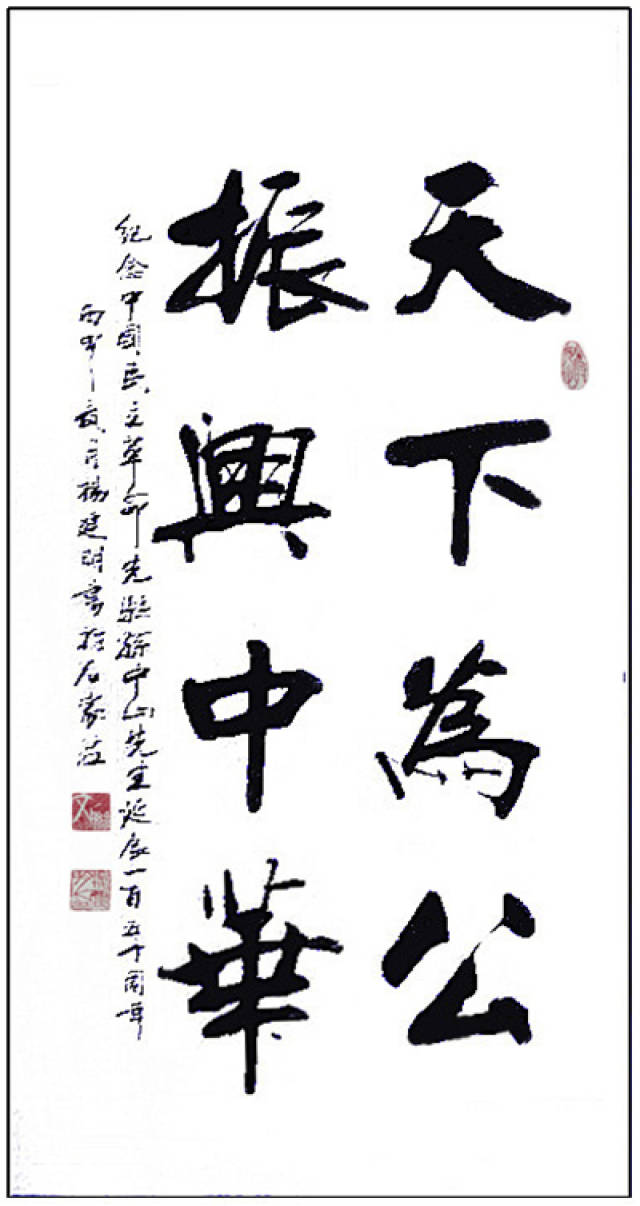 天下為公
振興中華
紀念中国民主革命先驅孫中山先生誕辰一百五十周年
丙申之夏月楊建明書於石家莊